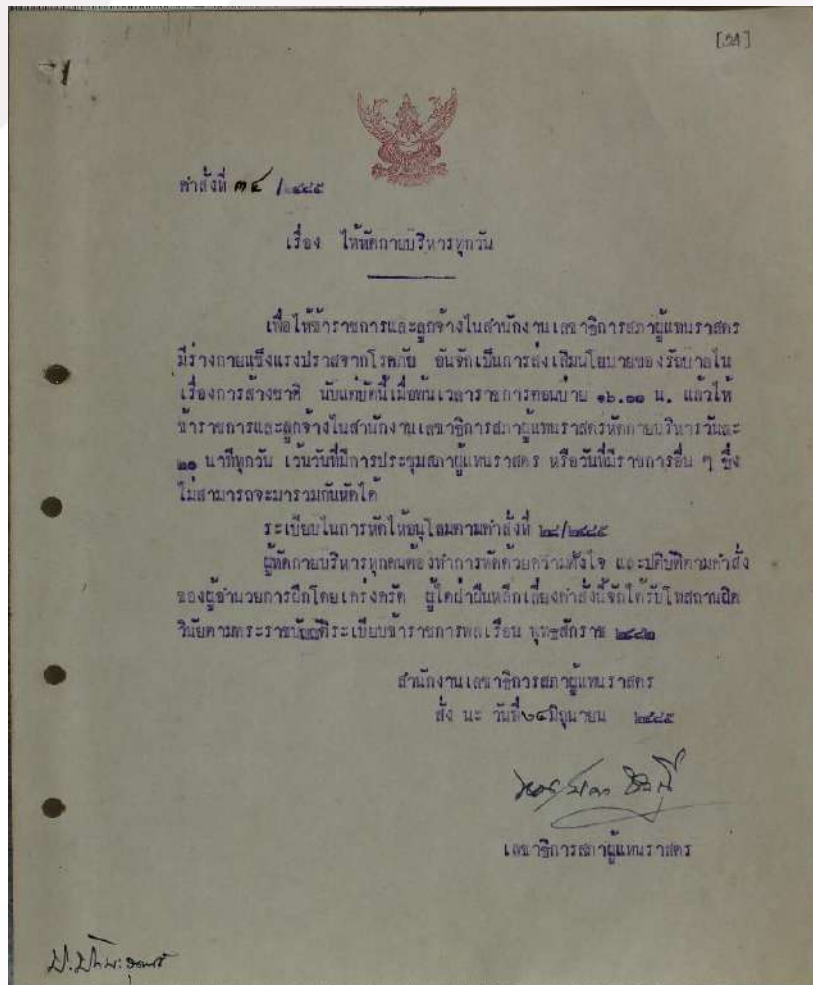 คำสั่งที่ ๓๔ /๒๔๘๕
เรื่อง ไห้หัดกายบริหารทุกวัน
เพื่อไห้ข้าราชการและลูกจ้างไนสำนักงานเลขาธิการสภาผู้แทนราสดร
มีร่างกายแข็งแรงปราสจากโรคภัย อันจักเป็นการส่งเสิมนโยบายของรัถบาลไน
เรื่องการส้างชาติ นับแต่บัดนี้เมื่อพ้นเวลาราชการตอนบ่าย ๑๖.๐๐ น. แล้วไห้
ข้าราชการและลูกจ้างไนสำนักงานเลขาธิการสภาผู้แทนราสดรหัดกายบริหารวันละ
๒๐ นาทีทุกวัน เว้นวันที่มีการประชุมสภาผู้แทนราสดร หรือวันที่มีราชการอื่น ๆ ซึ่ง
ไม่สามารถจะมารวมกันหัดได้
ระเบียบไนการหัดไห้อนุโลมตามคำสั่งที่ ๒๘/๒๔๘๕
ผู้หัดกายบริหารทุกคนต้องทำการหัดด้วยความตั้งไจ และปติบัติตามคำสั่ง
ของผู้อำนวยการฝึกโดยเคร่งครัด ผู้ไดฝ่าฝืนหลีกเลี่ยงคำสั่งนี้จักได้รับโทสถานผิด
วินัยตามพระราชบัญญัติระเบียบข้าราชการพลเรือน พุทธสักราช ๒๔๘๒
สำนักงานเลขาธิการสภาผู้แทนราสดร
สั่ง นะ วันที่๒๔มิถุนายน ๒๔๘๕
เลขาธิการสภาผู้แทนราสดร